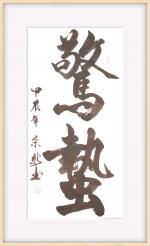 驚蟄
甲辰年